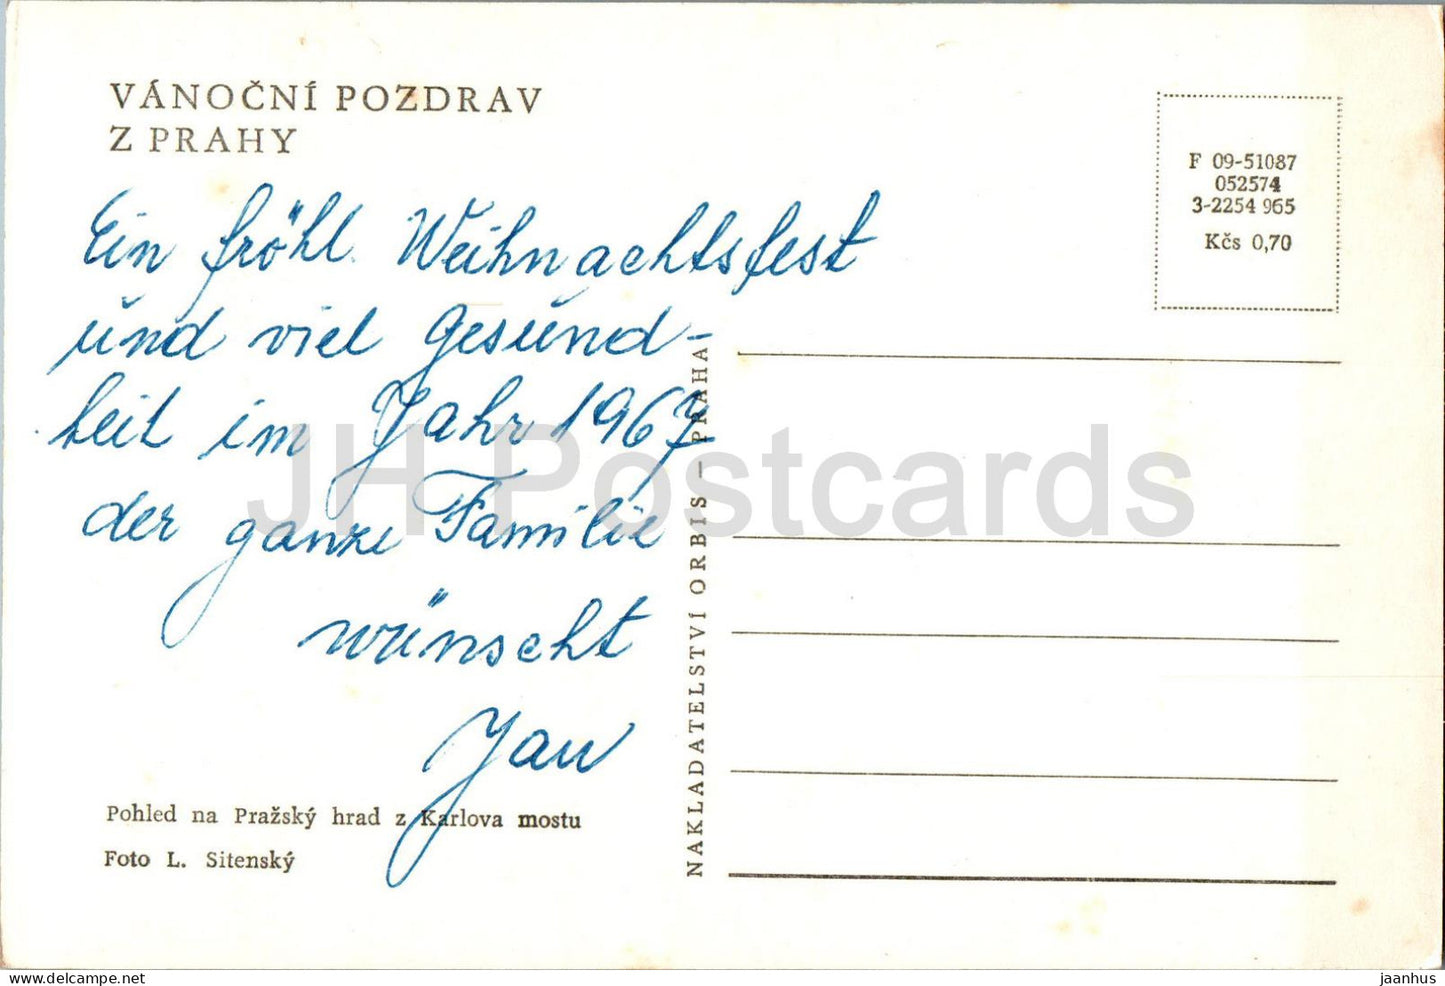 VÁNOČNÍ POZDRAV
Z PRAHY
Ein fröhl. Weihnachtsfest
und viel Gesund-
heit im Jahr 1967
der ganze Familie
wünscht
Jan
Pohled na Pražský hrad z Karlova mostu
Foto L. Sitenský
NAKLADATELSTVÍ ORBIS – PRAHA
F 09-51087
052574
3-2254 965
Kčs 0,70
JH Postcards
www.delcampe.net
jaanhus